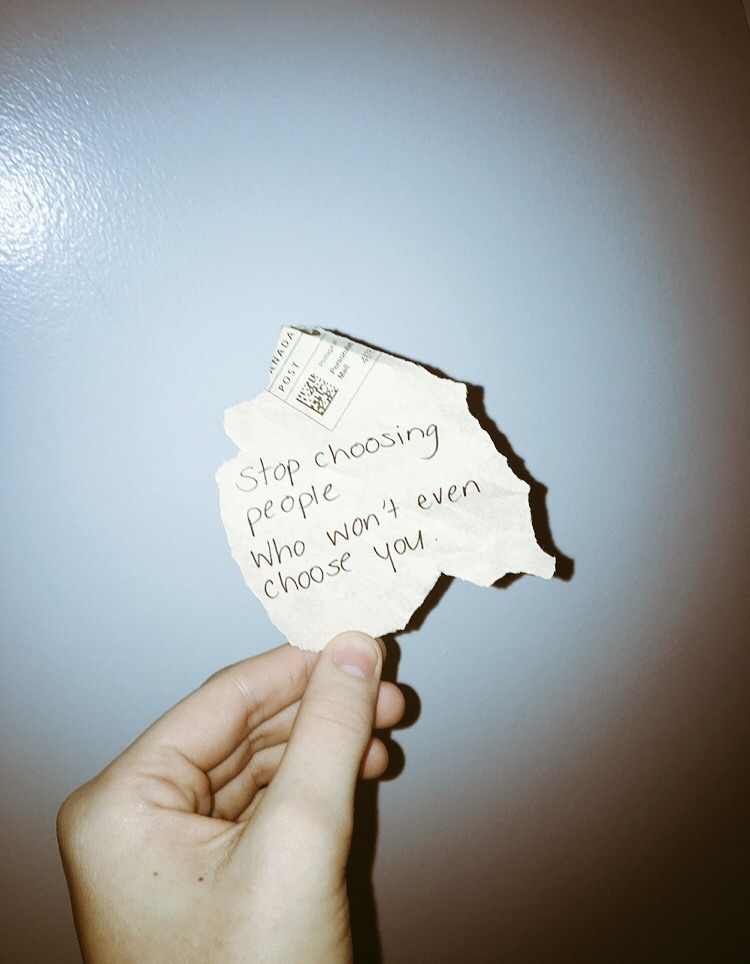 ANADA
POST
Personal
Mail
Stop choosing
people
Who won't even
choose you.